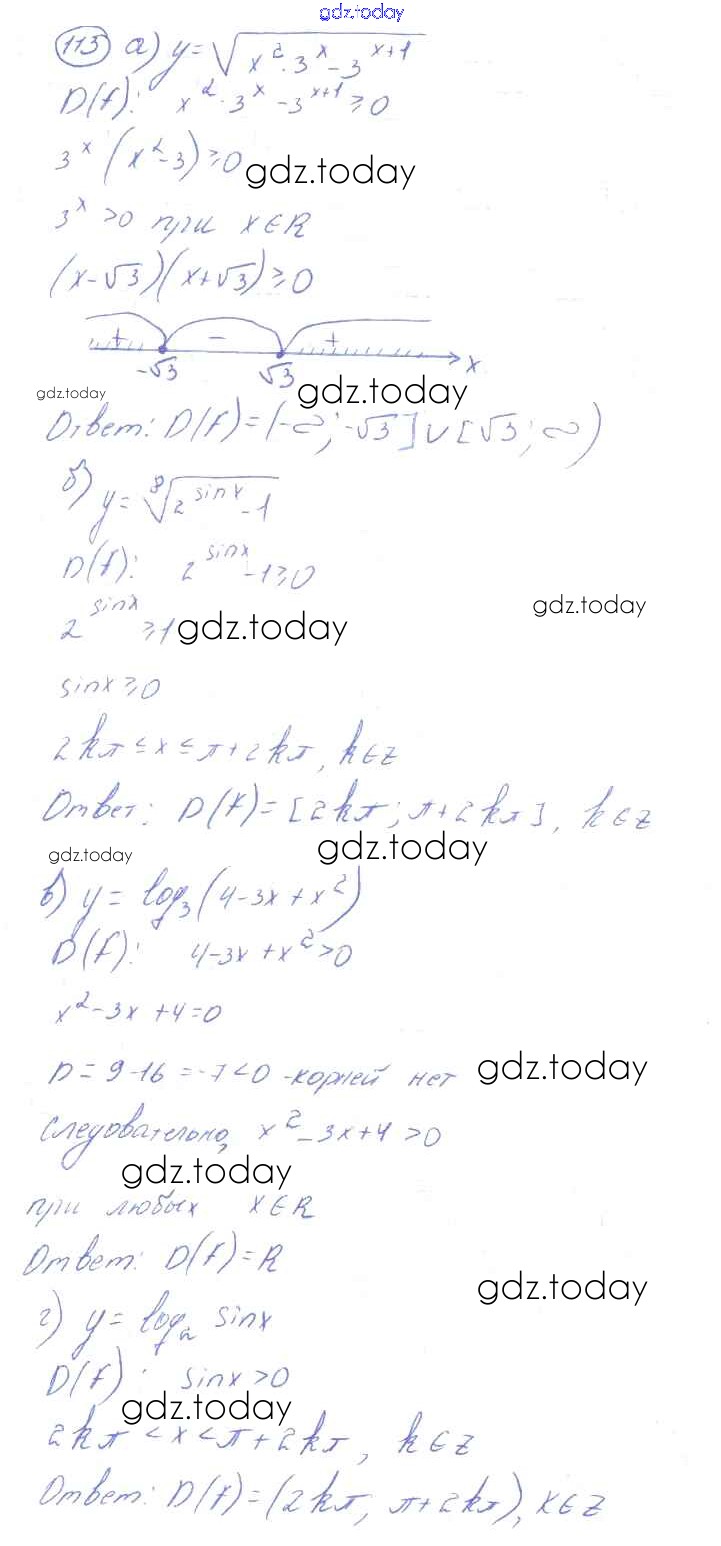 gdz.today
113 а) y = √(x² · 3ˣ - 3ˣ⁺¹)
D(f): x² · 3ˣ - 3ˣ⁺¹ ≥ 0
3ˣ (x² - 3) ≥ 0 gdz.today
3ˣ > 0 при x ∈ R
(x - √3)(x + √3) ≥ 0
+ - +
-√3 √3 x
gdz.today gdz.today
Ответ: D(f) = (-∞; -√3] ∪ [√3; ∞)
б) y = ⁸√(2^sinx - 1)
D(f): 2^sinx - 1 ≥ 0
gdz.today
2^sinx ≥ 1 gdz.today
sinx ≥ 0
2kπ ≤ x ≤ π + 2kπ, k ∈ z
Ответ: D(f) = [2kπ; π + 2kπ], k ∈ z
gdz.today gdz.today
в) y = log₃(4 - 3x + x²)
D(f): 4 - 3x + x² > 0
x² - 3x + 4 = 0
D = 9 - 16 = -7 < 0 - корней нет gdz.today
Следовательно, x² - 3x + 4 > 0
gdz.today
при любых x ∈ R
Ответ: D(f) = R
gdz.today
г) y = log₂ sinx
D(f): sinx > 0
gdz.today
2kπ < x < π + 2kπ, k ∈ z
Ответ: D(f) = (2kπ, π + 2kπ), x ∈ z